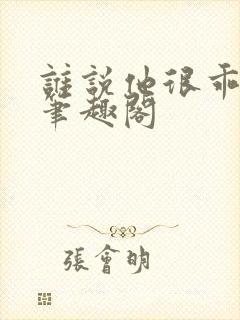 誰說他很乖
筆趣閣
張會明